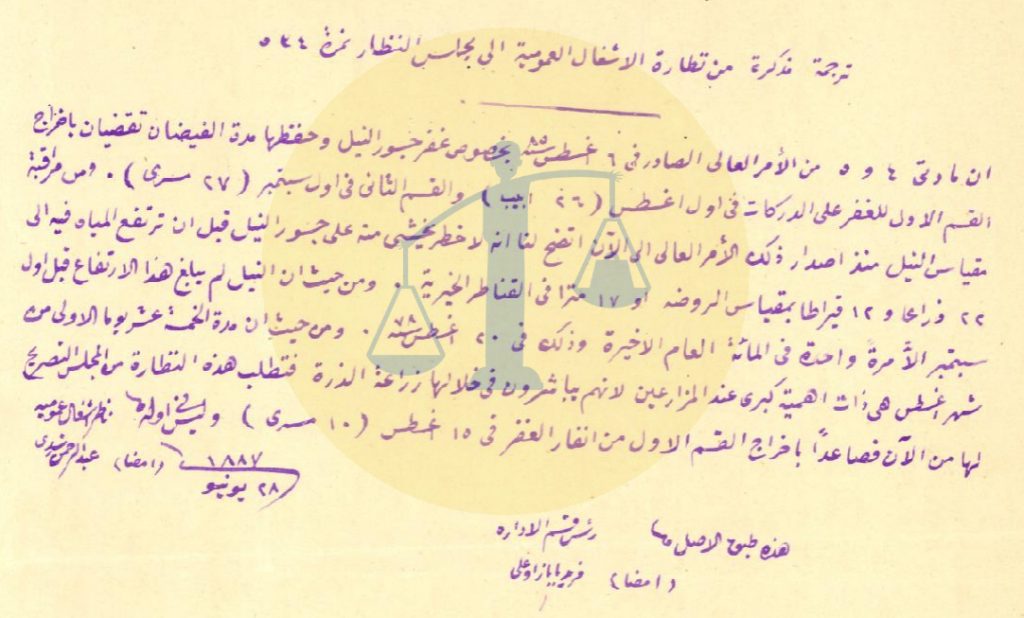 ترجمة مذكرة من نظارة الاشغال العمومية الى مجلس النظار نمرة ٥٣٤
ان مادتى ٤ و ٥ من الأمر العالى الصادر فى ٦ اغسطس سنة ٨٥ بخصوص غفر جسور النيل وحفظها مدة الفيضان تقضيان باخراج
القسم الاول للغفر على الدركات فى اول اغسطس (٢٦ ابيب) والقسم الثانى فى اول سبتمبر (٢٧ مسرى). ومن مراقبة
مقياس النيل منذ اصدار ذلك الأمر العالى الى الآن اتضح لنا انه لا خطر يخشى منه على جسور النيل قبل ان ترتفع المياه فيه الى
٢٢ ذراعا و ١٢ قيراطا بمقياس الروضه او ١٧ مترا فى القناطر الخيرية. ومن حيث ان النيل لم يبلغ هذا الارتفاع قبل اول
سبتمبر الا مرة واحدة فى المائة العام الاخيرة وذلك فى ٢٠ اغسطس سنة ٧٨. ومن حيث ان مدة الخمسة عشر يوما الاولى من
شهر اغسطس هى ذات اهمية كبرى عند المزارعين لانهم يباشرون فى خلالها زراعة الذرة فتطلب هذه النظارة من المجلس التصريح
لها من الآن فصاعدًا باخراج القسم الاول من انفار الغفر فى ١٥ اغسطس (١٠ مسرى) وليس فى اوله ناظر اشغال عموميه
(امضا) عبد الرحمن رشدى
٢٨ يونيو ١٨٨٧
هذه طبق الاصل رئيس قسم الاداره
(امضا)